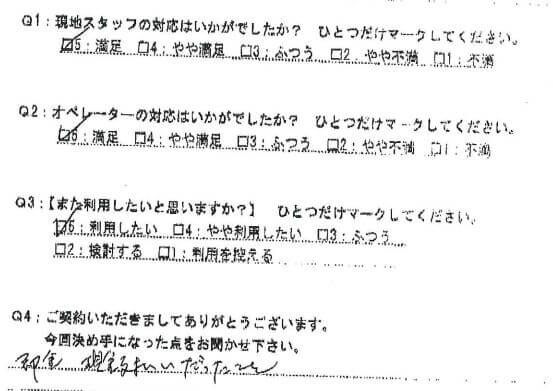 Q1：現地スタッフの対応はいかがでしたか？　ひとつだけマークしてください。
☑5：満足　□4：やや満足　□3：ふつう　□2．やや不満　□1：不満
Q2：オペレーターの対応はいかがでしたか？　ひとつだけマークしてください。
☑5：満足　□4：やや満足　□3：ふつう　□2：やや不満　□1：不満
Q3：【また利用したいと思いますか？】　ひとつだけマークしてください。
☑5：利用したい　□4：やや利用したい　□3：ふつう
□2：検討する　□1：利用を控える
Q4：ご契約いただきましてありがとうございます。
今回決め手になった点をお聞かせ下さい。
料金　現金払いだったこと